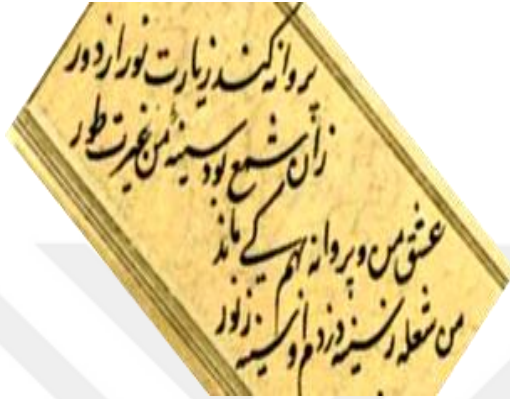 پروانه کند زیارت نور از دور
زان شمع بود سینهٔ من غیرت طور
عشق من و پروانه بهم کے ماند
من شعله ز سینه دزدم او سینه ز نور